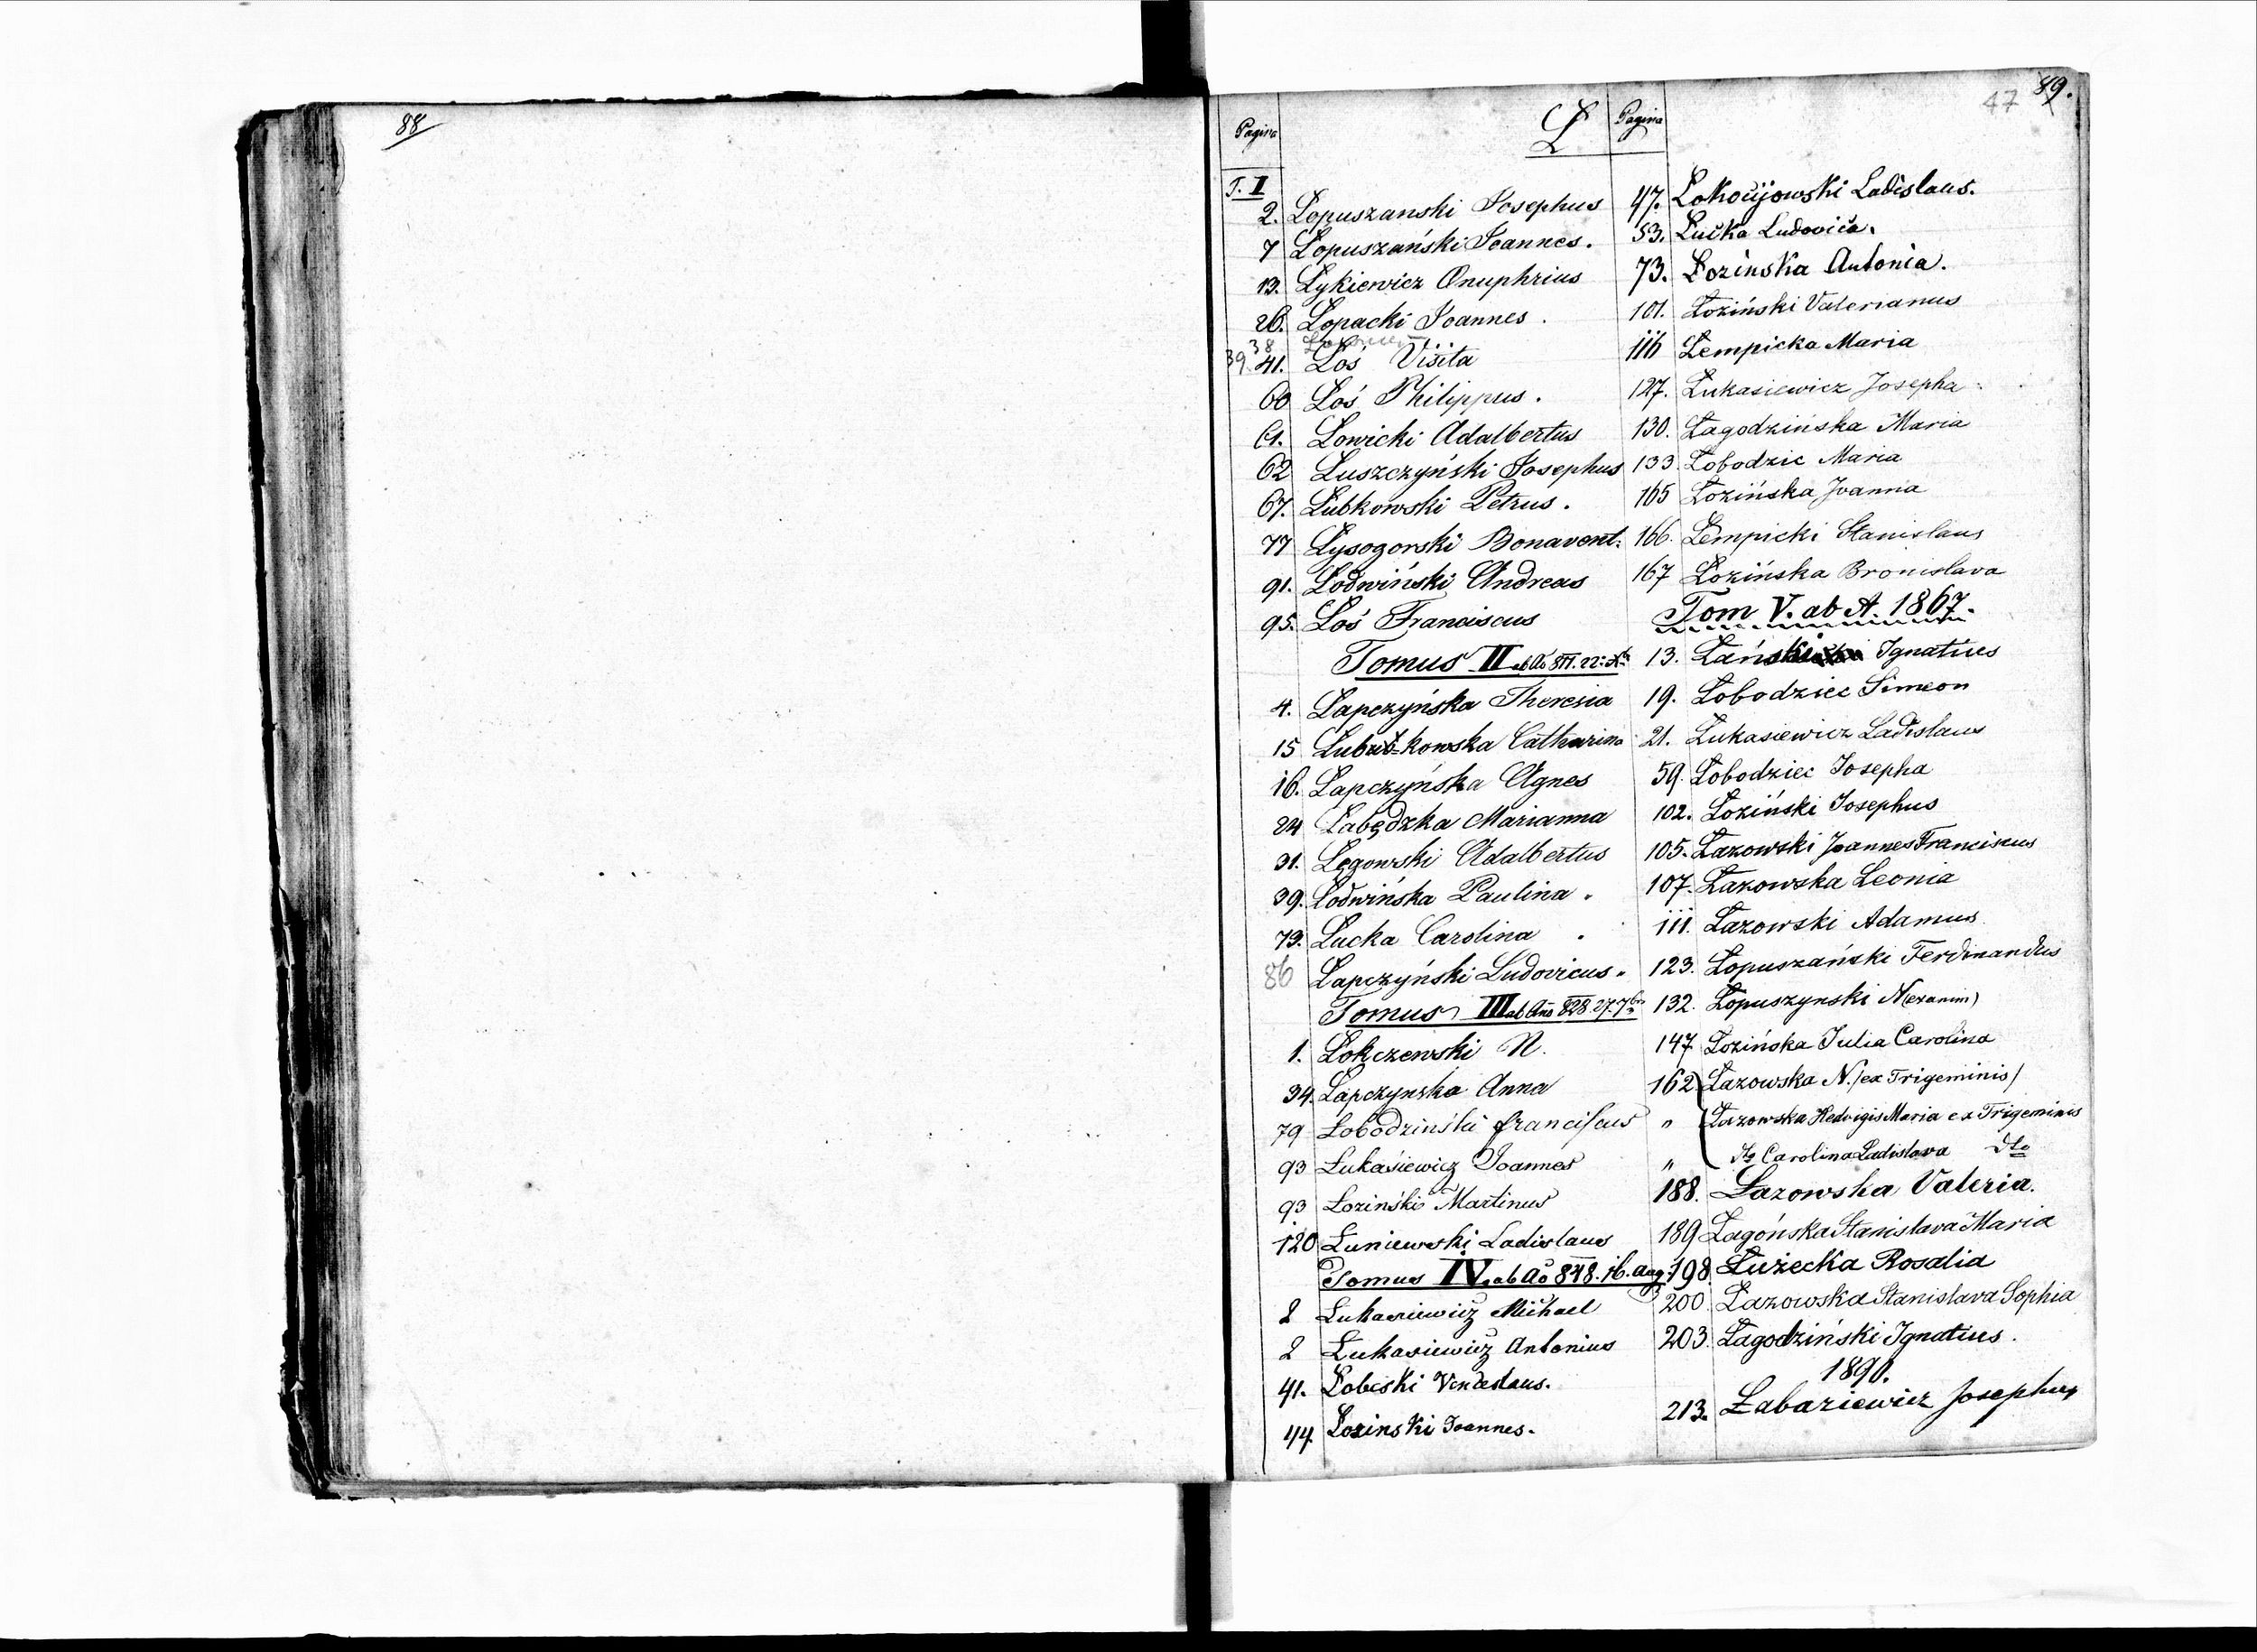 88
47 89.
Pagina
Ł
Pagina
T. I
2. Łopuszanski Josephus
7 Łopuszański Joannes.
13. Łykiewicz Onuphrius
26. Łopacki Joannes.
38
39. 41. Łoś Visita
60 Łoś Philippus.
61. Łowicki Adalbertus
62 Łuszczyński Josephus
67. Łubkowski Petrus.
77 Łysogorski Bonavent:
91. Łodwiński Andreas
95. Łoś Franciscus
Tomus II ab Ao 811. 22:
4. Łapczyńska Theresia
15 Łubkowska Catharina
16. Łapczyńska Agnes
24 Łabędzka Marianna
31. Łęgowski Adalbertus
39. Łodwińska Paulina.
79. Łucka Carolina.
86 Łapczyński Ludovicus.
Tomus III ab Ano 828. 27. 7bris
1. Łokczewski N.
34. Łapczynska Anna
79 Łobodziński Franciscus
93 Łukasiewicz Joannes
93 Łoziński Martinus
120 Łuniewski Ladislaus
Tomus IV. ab Ao 848. 16. Aug.
2 Łukasiewicz Michael
2 Łukasiewicz Antonius
41. Łobeski Venceslaus.
44. Łozinski Joannes.
47. Łokocijowski Ladislaus.
53. Łucka Ludovica.
73. Łozińska Antonia.
101. Łoziński Valerianus
116 Łempicka Maria
127. Łukasiewicz Josepha
130. Łagodzińska Maria
133 Łobodzic Maria
165 Łozińska Joanna
166. Łempicki Stanislaus
167 Łozińska Bronislava
Tom V. ab A. 1867.
13. Łański Ignatius
19. Łobodziec Simeon
21. Łukasiewicz Ladislaus
59. Łobodziec Josepha
102. Łoziński Josephus
105. Łazowski Joannes Franciscus
107. Łazowska Leonia
111. Łazowski Adamus
123. Łopuszański Ferdinandus
132. Łopuszynski N (exanim)
147 Łozińska Julia Carolina
162 Łazowska N. /ex Trigeminis/
" Łazowska Hedvigis Maria ex Trigeminis
" dto Carolina Ladislava dto
188. Łazowska Valeria.
189 Łagońska Stanislava Maria
198 Łużecka Rosalia
200 Łazowska Stanislava Sophia
203. Łagodziński Ignatius.
1890.
213. Łabaziewicz Josephus